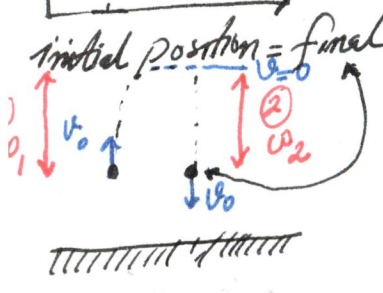 initial position = final
v=0
v₀ ②
ω₂
v₀